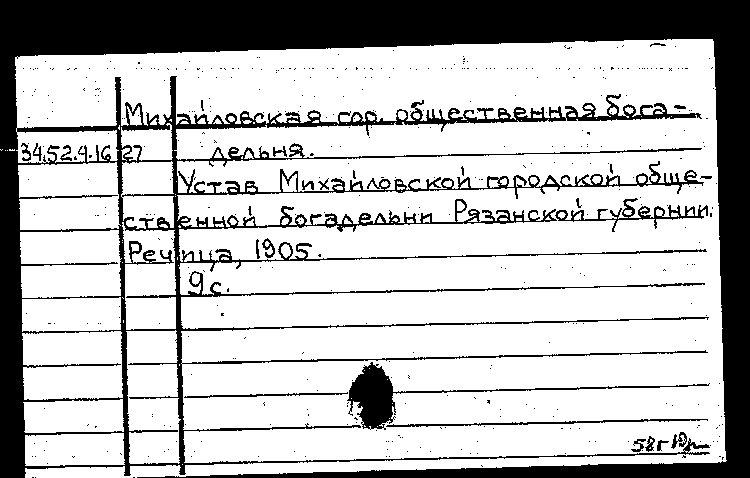 Михайловская гор. общественная бога-
34.52.9.16 27 дельня.
Устав Михайловской городской обще-
ственной богадельни Рязанской губернии.
Речица, 1905.
9 с.
58г